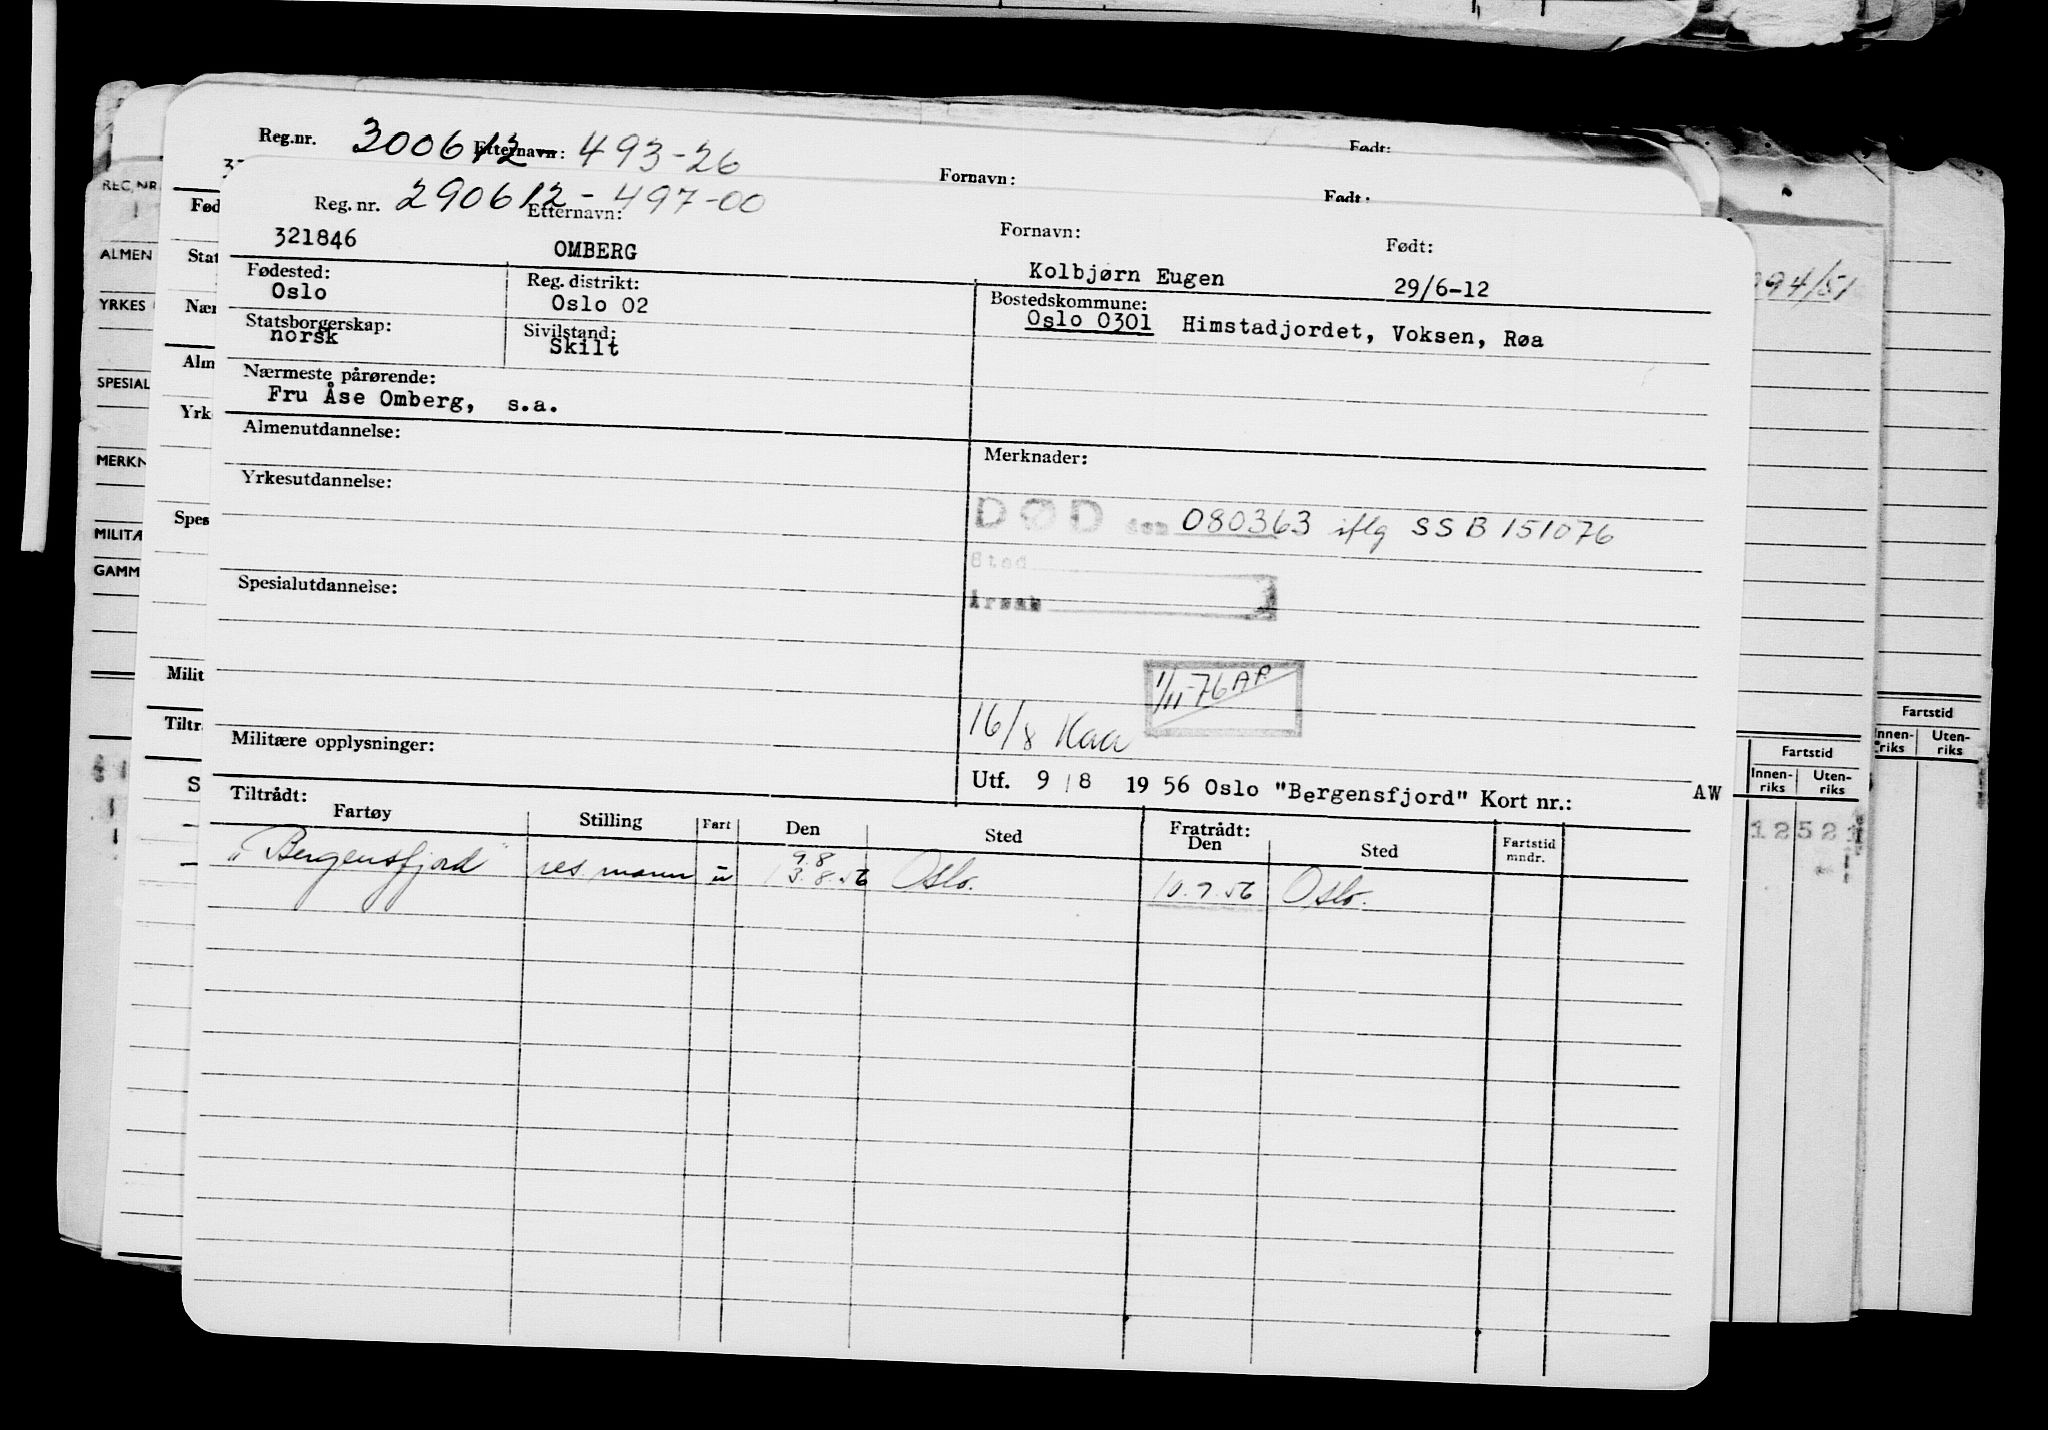 Reg.nr. 300612 Etternavn: 493-26 Fornavn: Født:
Reg. nr. 290612-497-00 Etternavn: Fornavn: Født:
321846 OMBERG Kolbjørn Eugen 29/6-12
Fødested: Reg. distrikt: Bostedskommune:
Oslo Oslo 02 Oslo 0301 Himstadjordet, Voksen, Røa
Statsborgerskap: Sivilstand:
norsk Skilt
Nærmeste pårørende:
Fru Åse Omberg, s.a.
Almenutdannelse: Merknader:
Yrkesutdannelse:
DØD den 080363 iflg SSB 151076
Sted
Årsak
Spesialutdannelse:
1/11-76 AP
16/8 Kaa
Militære opplysninger:
Utf. 9/8 1956 Oslo "Bergensfjord" Kort nr.: AW
Tiltrådt: Fratrådt:
Fartøy Stilling Fart Den Sted Den Sted Fartstid mndr.
9.8
"Bergensfjord" res mann u 13.8.56 Oslo. 10.9.56 Oslo.
REG.NR.
ALMEN
YRKES
SPESIAL
MERKN
MILITÆ
GAMM
Fød
Stat
Nær
Alm
Yrk
Spes
Milit
Tiltr
S
94/51
Fartstid
Innen-riks Uten-riks
Fartstid
Innen-riks Uten-riks
1252